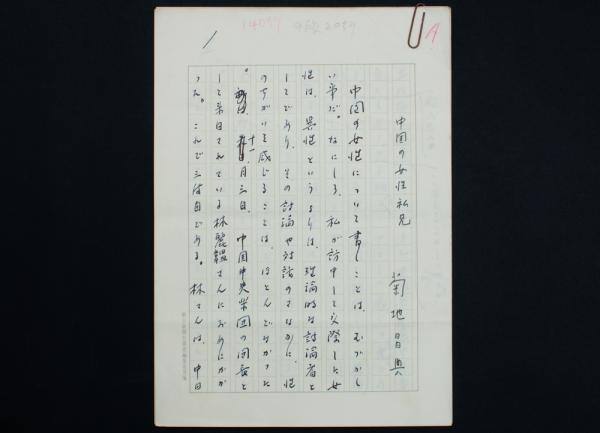 14Q
1
A
中国の女性私見
菊地昌典
中国の女性について書くことは、むづかし
い事だ。なにしろ、私が訪中して交際した女
性は、異性というよりは、理論的な討論者と
してであり、その討論や対話のさなかに、性
のちがいを感じることは、ほとんどなかった
。十一月三日、中国中央楽団の団長と
して来日されている林麗韞さんにおあいにかか
った。これで三度目である。林さんは、中日